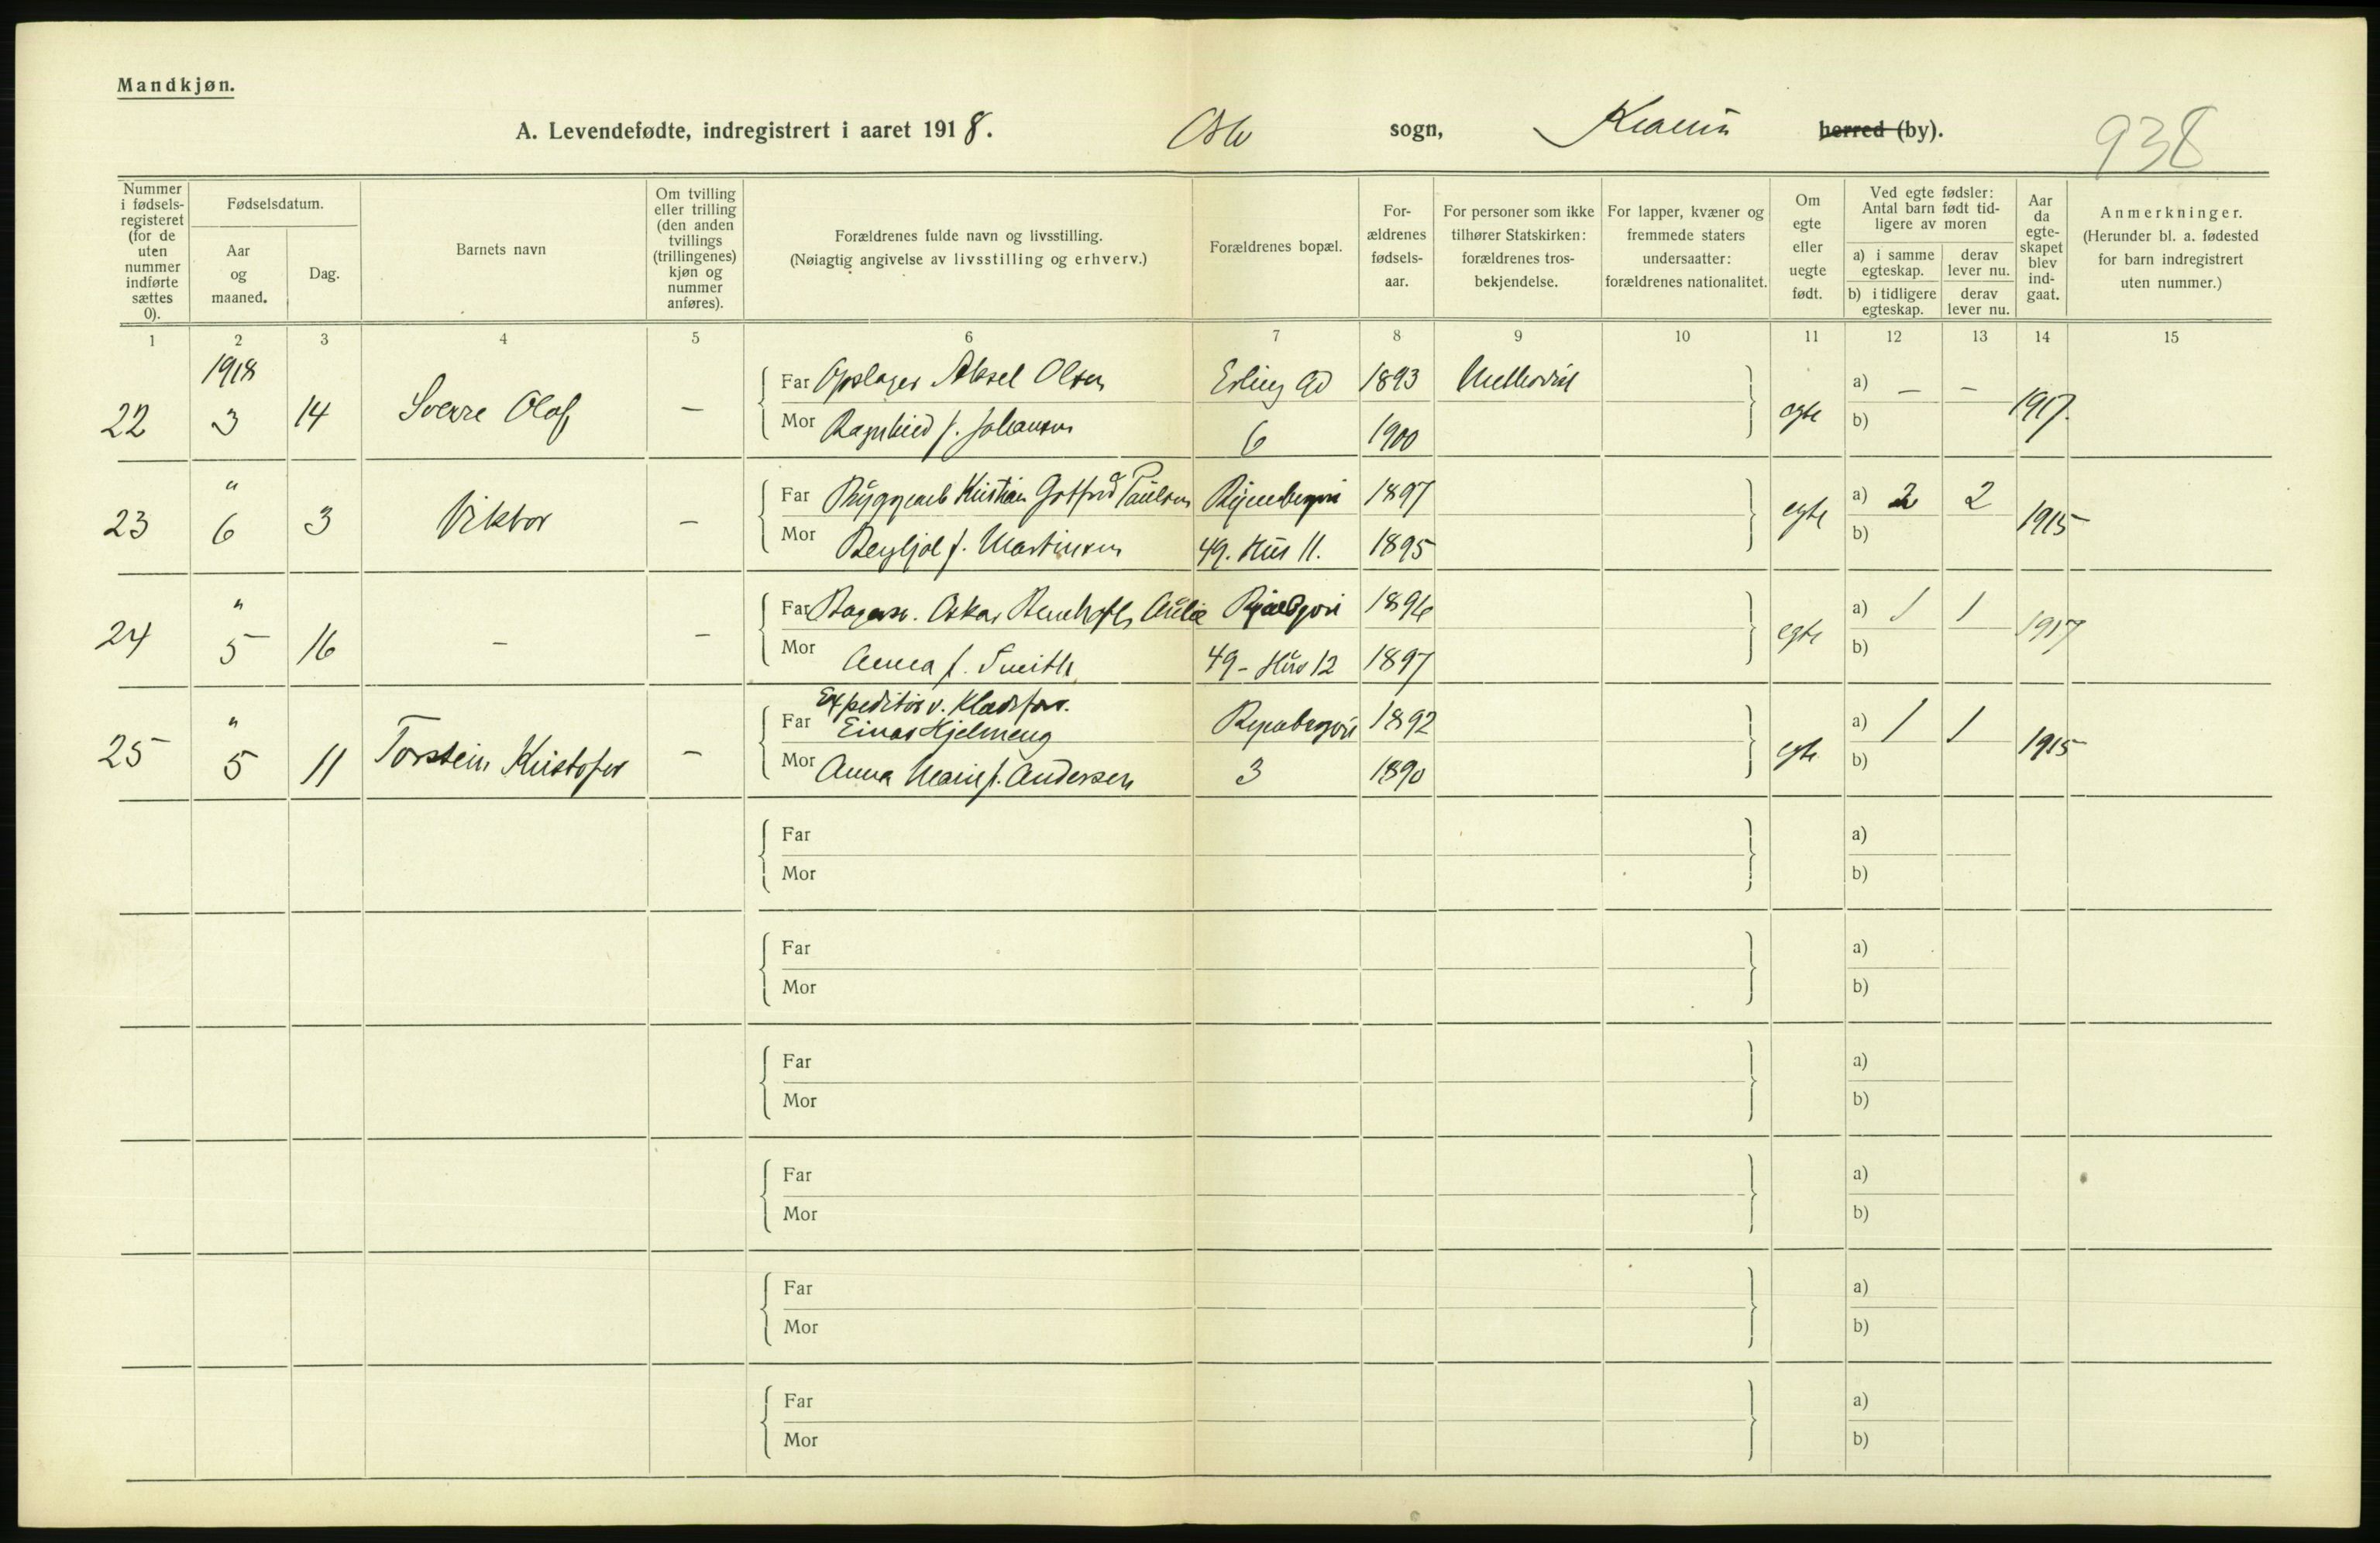 Mandkjøn.
A. Levendefødte, indregistrert i aaret 1918. Oslo sogn, herred (by).
938
Nummer i fødsels-registeret (for de uten nummer indførte sættes 0).
Fødselsdatum.
Aar og maaned.
Dag.
Barnets navn
Om tvilling eller trilling (den anden tvillings (trillingenes) kjøn og nummer anføres).
Forældrenes fulde navn og livsstilling.
(Nøiagtig angivelse av livsstilling og erhverv.)
Forældrenes bopæl.
For-ældrenes fødsels-aar.
For personer som ikke tilhører Statskirken: forældrenes tros-bekjendelse.
For lapper, kvæner og fremmede staters undersaatter: forældrenes nationalitet.
Om egte eller uegte født.
Ved egte fødsler: Antal barn født tid-ligere av moren
a) i samme egteskap.
derav lever nu.
b) i tidligere egteskap.
derav lever nu.
Aar da egte-skapet blev ind-gaat.
Anmerkninger.
(Herunder bl. a. fødested for barn indregistrert uten nummer.)
1 2 3 4 5 6 7 8 9 10 11 12 13 14 15
1918
22 3 14 Sverre Olaf — Far Opslager Aksel Olsen Erling Gd 1893 egte a) — — 1917.
Mor Ragnhild f. Johansen 6 1900 b)
23 " 6 3 Viktor — Far Kristian Gotfred Paulsen 1897 egte a) 2 2 1915
Mor Bergljot f. Martinsen 49. Hus 11. 1895 b)
24 " 5 16 — — Far Oskar 1896 egte a) 1 1 1917
Mor Anna f. Smith 49 - Hus 12 1897 b)
Expeditør v. Klædesforr.
25 " 5 11 Torstein Kristofer — Far Einar Hjelmeng 1892 egte a) 1 1 1915
Mor Anna Marie f. Andersen 3 1890 b)
Far a)
Mor b)
Far a)
Mor b)
Far a)
Mor b)
Far a)
Mor b)
Far a)
Mor b)
Far a)
Mor b)